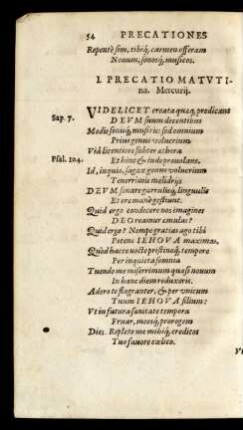 54 PRECATIONES
Repente sim, tibiq́; carmen offeram
Nouum, sonosq́; musicos.
I. PRECATIO MATVTI-
na. Mercurij.
VIDELICET creata quæq; prædicant
Sap. 7. DEVM suum decentibus
Modis sonisq́; musicis: sed omnium
Prime genus volucrium
Vid sub æthera
Psal. 104. Et hinc & inde prouolans.
Id, inquis, sagax genus volucrium
melidrijs
DEVM sonare garrulisq́; lingulis
Et ore mane gestiunt.
Quid ergo condecere nos imagines
DEO reamur æmulas?
Quid ergo? Nempe gratias ago tibi
Potens IEHOVA maximas,
Quòd hacce nocte pristinoq́; tempore
Per inquieta somnia
Tuendo me miserrimum quasi nouum
In hanc diem reduxeris.
Adoro te flagranter, & per vnicum
Tuum IEHOVA filium:
Vt in futura sanitate tempora
Fruar, meosq́; proregem
Dies. Replete me mihiq́; creditos
Tuo fauore cælico.